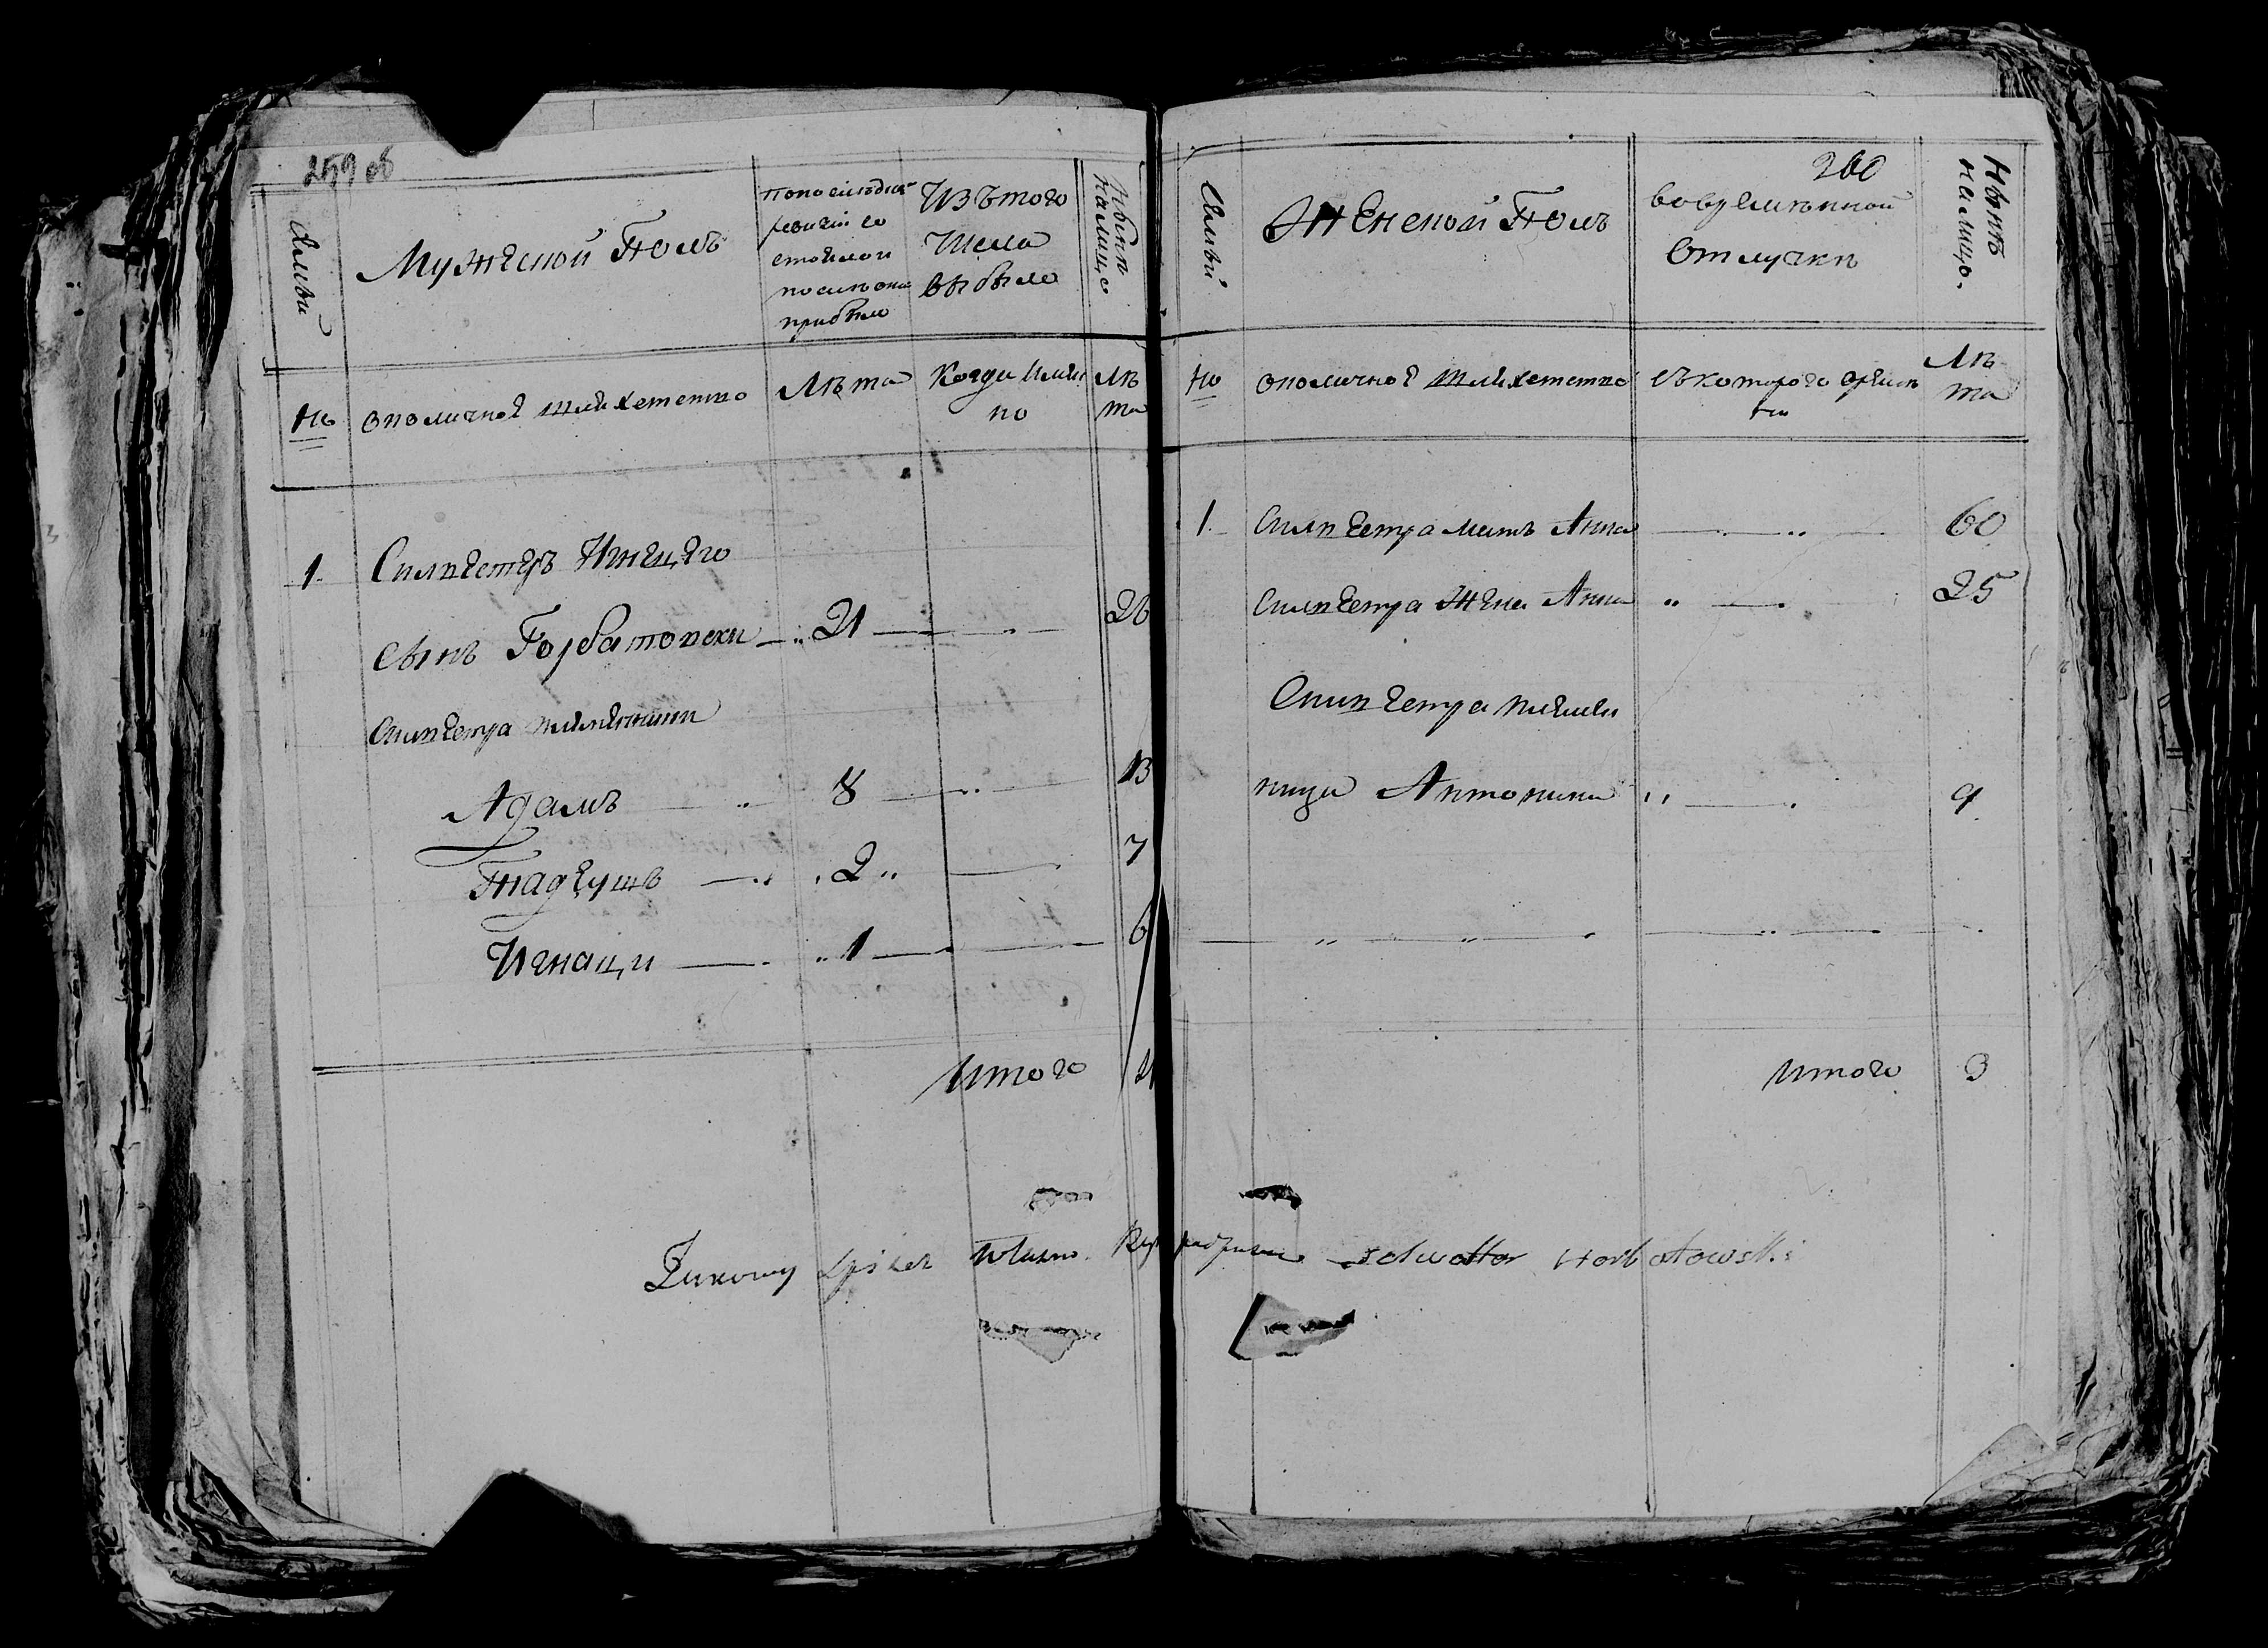 259 об
Семьи
Мужеской Полъ
По последней
ревизіи со
стояло и
после оной
прибыло
Изътого
Числа
выбыло
Ныне
налицо
№
околичное шляхетство
Лѣта
Когда имян
но
Лѣ
та
1.
Сильвестръ
сынъ Горбатовски 21 26
Сильвестра племянники
Адамъ 8 13
Тнадеушъ 2 7
Игнаци 1 6
Итого 4
260
Семьи
Женской Полъ
вовременной
отлучке
Нынѣ
налицо.
№
околичное шляхетство
съкоторого времѣ
ни
Лѣ
та
1. Сильвестра мать Анна 60
Сильвестра Жена Анна 25
Сильвестра племян
ница Антонина 9
Итого 3
Horbatowski